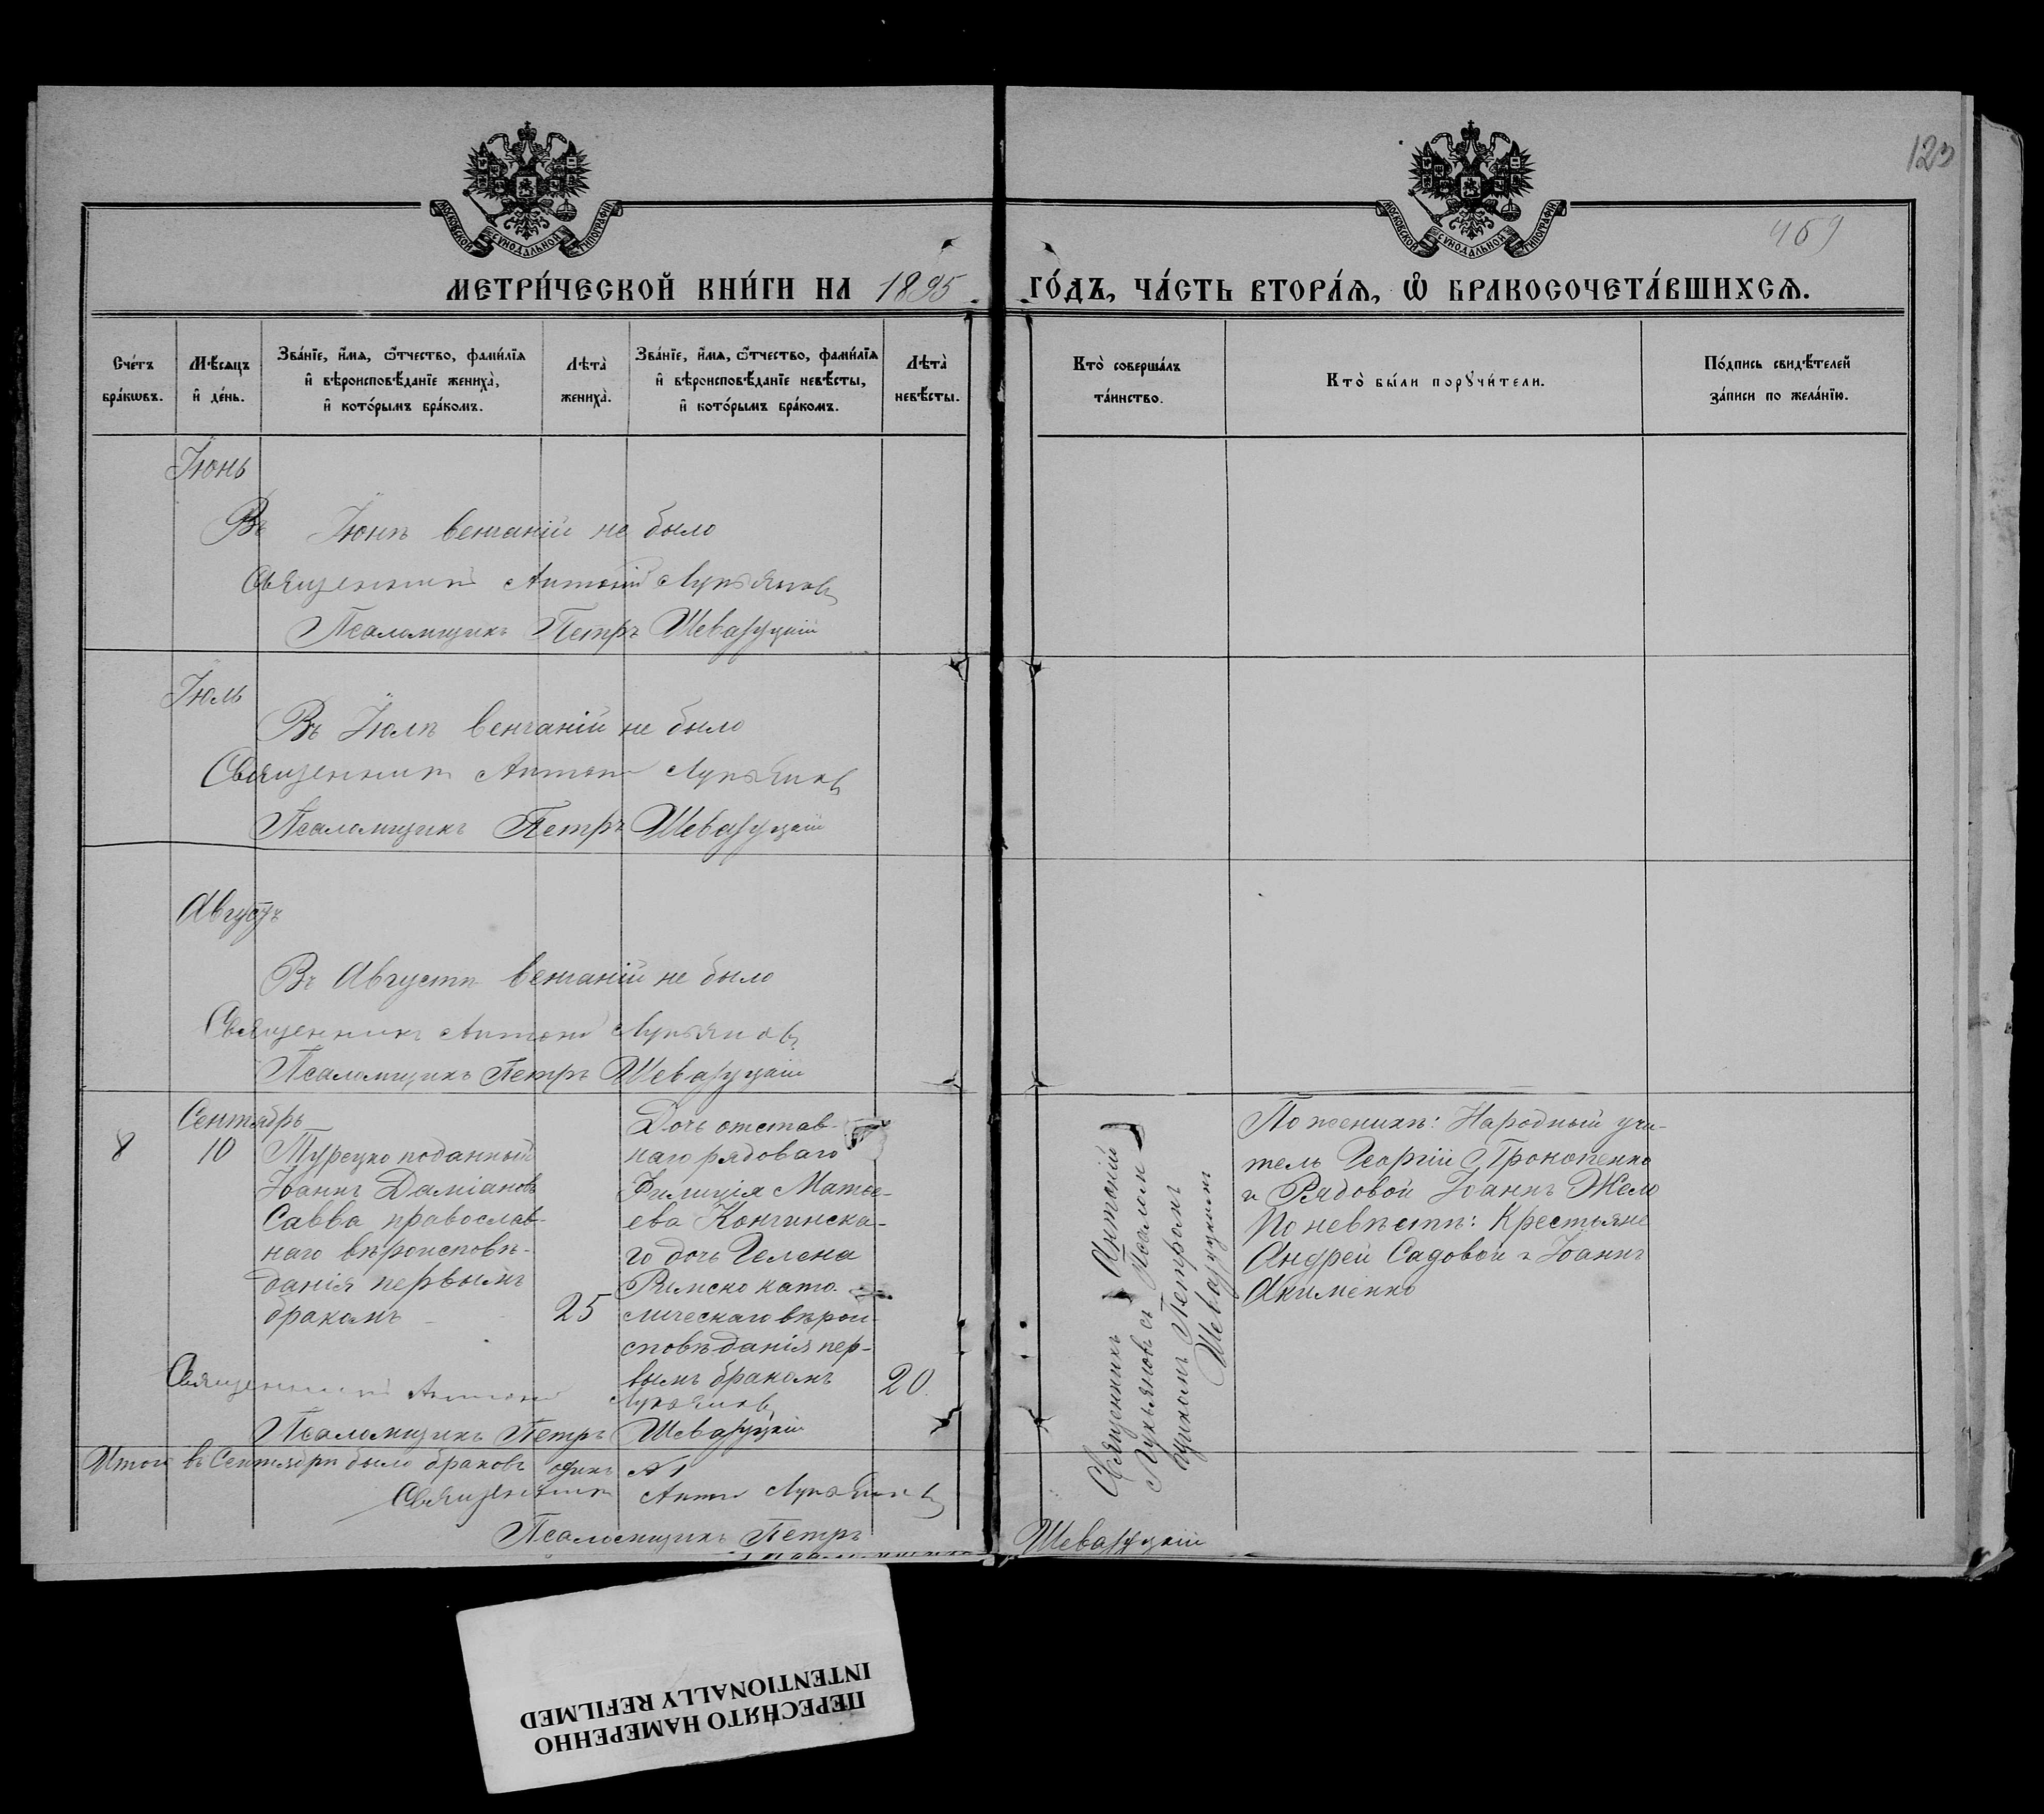 123
469
МОСКОВСКОЙ СУНОДАЛЬНОЙ ТИПОГРАФІИ
МОСКОВСКОЙ СУНОДАЛЬНОЙ ТИПОГРАФІИ
МЕТРИ́ЧЕСКОЙ КНИ́ГИ НА 1895 ГО́ДЪ, ЧА́СТЬ ВТОРА́Ѧ, Ѽ БРАКОСОЧЕТА́ВШИХСѦ.
Сче́тъ бра́кѡвъ.
Мѣ́сяцъ и҆ де́нь.
Зва́нїе, и҆́мѧ, ѻ҆́тчество, фами́лїѧ и҆ вѣроисповѣ́данїе жениха̀, и҆ кото́рымъ бра́комъ.
Лѣта̀ жениха̀.
Зва́нїе, и҆́мѧ, ѻ҆́тчество, фами́лїѧ и҆ вѣроисповѣ́данїе невѣ́сты, и҆ кото́рымъ бра́комъ.
Лѣта̀ невѣ́сты.
Кто̀ соверша́лъ та́инство.
Кто̀ бы́ли порꙋчи́тели.
По́дпись свидѣ́телей за́писи по жела́нїю.
Іюнь
Въ Іюнѣ венчаній не было
Священникъ Антоній Лукьяновъ
Псаломщикъ Петръ
Іюль
Въ Іюлѣ венчаній не было
Священникъ Антоній Лукьяновъ
Псаломщикъ Петръ
Августъ
Въ Августѣ венчаній не было
Священникъ Антоній Лукьяновъ
Псаломщикъ Петръ
Сентябрь
8
10
Турецко поданный
Іоаннъ Даміановъ
Савва православ-
наго вѣроисповѣ-
данія первымъ
бракомъ
25
Дочь отстав-
наго рядоваго
Филиція Матѳе-
ева Кончинска-
го дочь Гелена
Римско като-
лическаго вѣрои-
сповѣданія пер-
вымъ бракомъ
20.
Священникъ Антоній
Лукьяновъ съ Псалом
щикомъ Петромъ
По женихѣ: Народный учи-
тель Георгій Прокопенко
и Рядовой Іоаннъ Жело
По невѣстѣ: Крестьяне
Андрей Садовой и Іоаннъ
Акименко
Священникъ Антоній Лукьяновъ
Псаломщикъ Петръ
Итого въ Сентябрѣ было браковъ одинъ №1
Священникъ Антоній Лукьяновъ
Псаломщикъ Петръ
ПЕРЕСНЯТО НАМЕРЕННО
INTENTIONALLY REFILMED